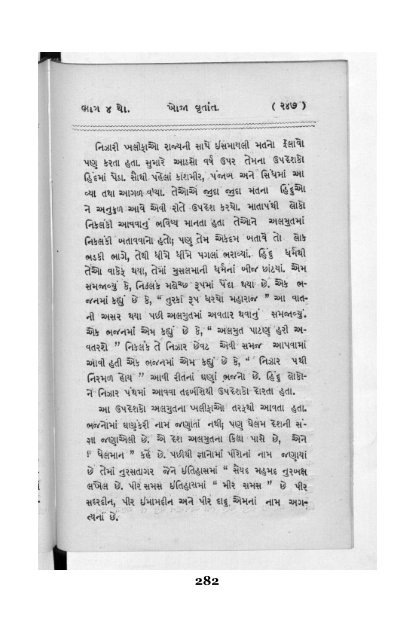 ભાગ ૪ થો. ખોજા વૃતાંત. ( ૨૪૭ )
નિઝારી ખલીફાઓ રાજ્યની સાથે ઈસમાયલી મતનો ફેલાવો
પણ કરતા હતા. સુમારે આઠસો વર્ષ ઉપર તેમના ઉપદેશકો
હિંદમાં પેઠા. સૌથી પહેલાં કાશમીર, પંજાબ અને સિંધમાં આ
વ્યા તથા આગળ વધ્યા. તેઓએ જુદા જુદા મતના હિંદુઓ
ને અનુકુળ આવે એવી રીતે ઉપદેશ કરયો. માતાપંથી લોકો
નિકલંકી આવવાનું ભવિષ્ય માનતા હતા તેઓને અલમુતમાં
નિકલંકી બતાવવાનો હતો; પણ તેમ એકદમ બતાવે તો લોક
ભડકી ભાગે, તેથી ધીમે ધીમે પગલાં ભરાવ્યાં. હિંદુ ધર્મથી
તેઓ વાકેફ થયા, તેમાં મુસલમાની ધર્મનાં બીજ છાંટયાં. એમ
સમજાવ્યું કે, નિકલંક મલેચ્છ રૂપમાં પેદા થયા છે. એક ભ-
જનમાં કહ્યું છે કે, “ તુરકાં રૂપ ધરયો મહારાજ ” આ વાત-
ની અસર થયા પછી અલમુતમાં અવતાર થવાનું સમજાવ્યું.
એક ભજનમાં એમ કહ્યું છે કે, “ અલમુત પાટણ હરી અ-
વતરશે ” નિકલંક તે નિઝાર છેવટ એવી સમજ આપવામાં
આવી હતી એક ભજનમાં એમ કહ્યું છે કે, “ નિઝાર પંથી
નિરમળ હોય ” આવી રીતનાં ઘણાં ભજનો છે. હિંદુ લોકો-
ને નિઝાર પંથમાં આવવા તદબીરથી ઉપદેશકો દોરતા હતા.
આ ઉપદેશકો અલમુતના ખલીફાઓ તરફથી આવતા હતા.
ભજનોમાં ઘણુંકરી નામ જણાતાં નથી; પણ ઘેલમ દેશની સં-
જ્ઞા જણાએલી છે. એ દેશ અલમુતના કિલ્લા પાસે છે, એને
“ ઘેલમાન ” કહે છે. પછીથી જ્ઞાનોમાં પીરોનાં નામ જણાયાં
છે તેમાં નુરસતાગર જેને ઈતિહાસમાં “ સૈયદ મહમદ નુરબક્ષ
લખેલ છે. પીર સમસ ઈતિહાસમાં “ મીર શમસ ” છે પીર
સદરદીન, પીર ઈમામદીન અને પીર દાદુ એમનાં નામ અગ-
ત્યનાં છે.
282